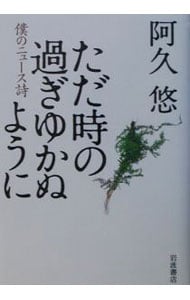 阿久 悠
ただ時の
過ぎゆかぬ
ように
僕のニュース詩
岩波書店